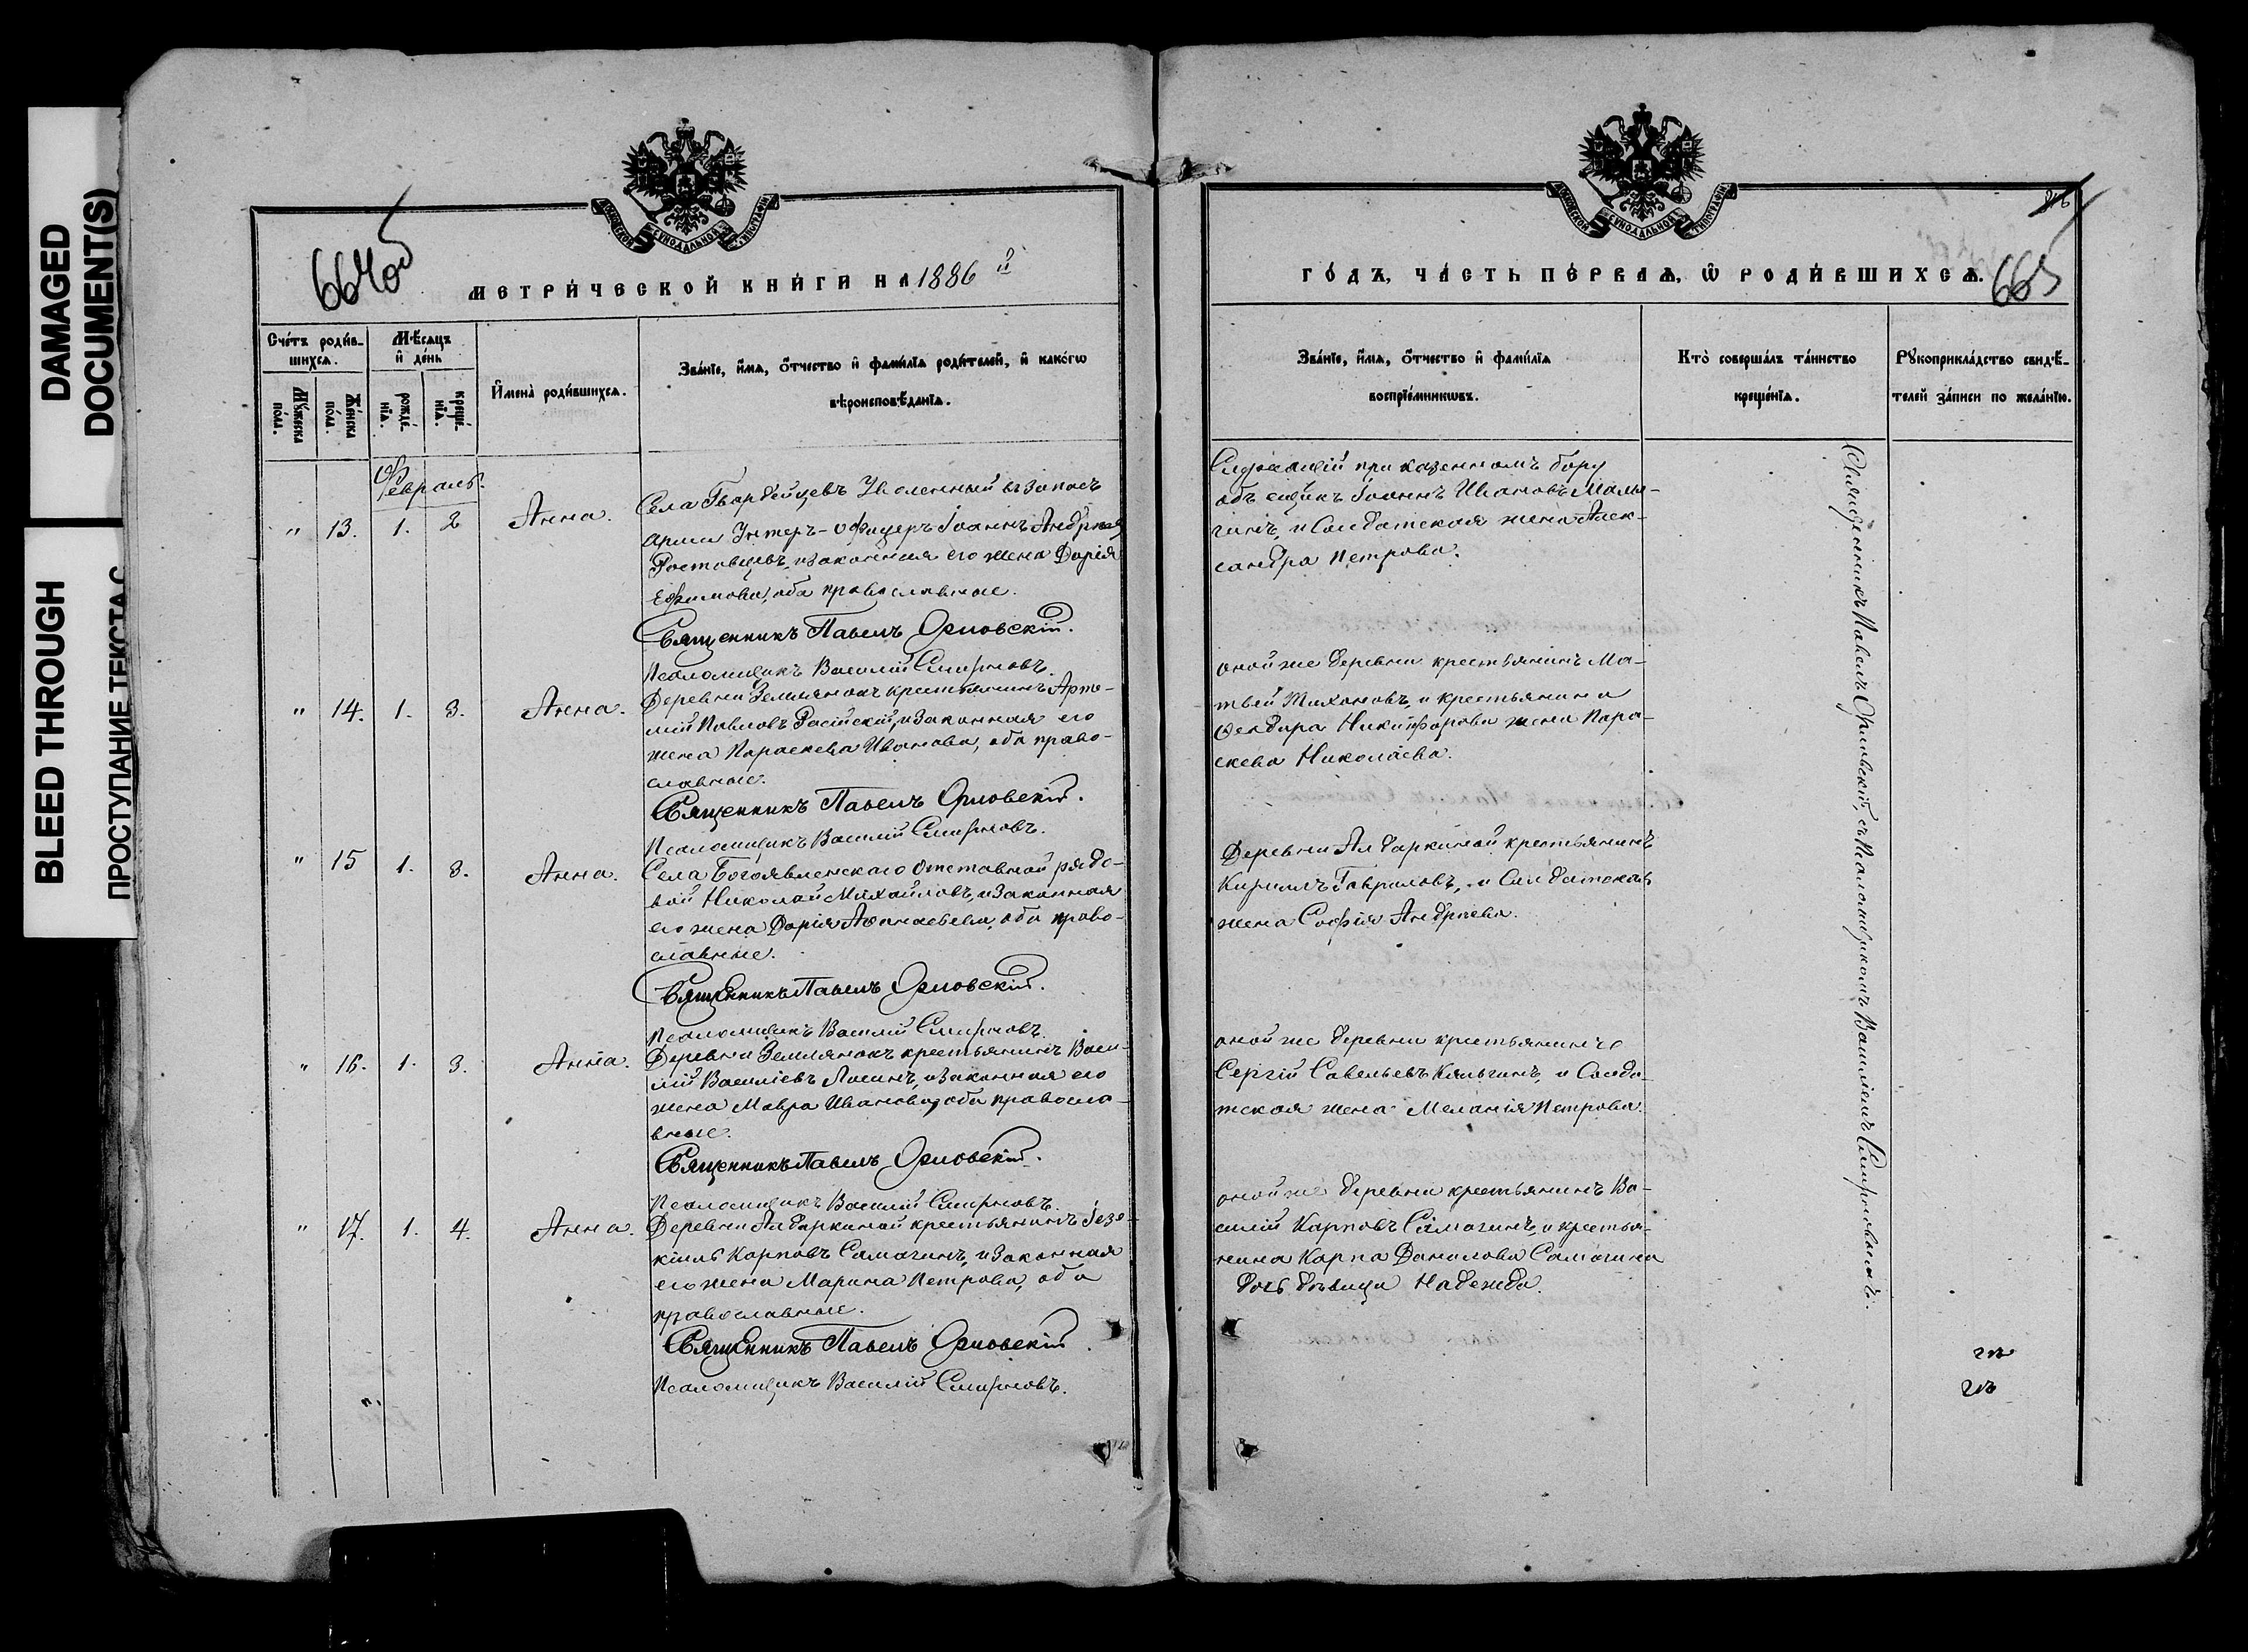 DAMAGED
DOCUMENT(S)
BLEED THROUGH
ПРОСТУПАНИЕ ТЕКСТА С
664об
МЕТРИЧЕСКОЙ КНИГИ НА 1886 й
Счетъ родив-
шихся.
Мѣсяцъ
и день
Мужеска
пола.
Женска
пола.
рожде-
нія.
креще-
нія.
Имена родившихся.
Званіе, имя, отчество и фамилія родителей, и какогѡ
вѣроисповѣданія.
Февраль.
" 13. 1. 2 Анна.
Села Гвардейцевъ Уволенный въ запасъ
арміи Унтеръ-офицеръ Іоаннъ Андреевъ
Ростовцевъ, и законная его жена Дарія
Ефимова, оба православные.
Священникъ Павелъ Орловскій.
Псаломщикъ Василій Смирновъ.
" 14. 1. 3. Анна.
Деревни Землянокъ крестьянинъ Арте-
мій Павловъ, и законная его
жена Параскева Иванова, оба право-
славные.
Священникъ Павелъ Орловскій.
Псаломщикъ Василій Смирновъ.
" 15 1. 3. Анна.
Села Богоявленскаго отставной рядо-
вой Николай Михайловъ, и законная
его жена Дарія Афанасьева, оба право-
славные.
Священникъ Павелъ Орловскій.
Псаломщикъ Василій Смирновъ.
" 16. 1. 3. Анна.
Деревни Землянокъ крестьянинъ Васи-
лій Василіевъ Лосинъ, и законная его
жена Мавра Иванова, оба правосла-
вные.
Священникъ Павелъ Орловскій.
Псаломщикъ Василій Смирновъ.
" 17. 1. 4. Анна.
Деревни Алдаркиной крестьянинъ Іезе-
кіиль Карповъ Самагинъ, и законная
его жена Марина Петрова, оба
православные.
Священникъ Павелъ Орловскій.
Псаломщикъ Василій Смирновъ.
ГОДЪ, ЧАСТЬ ПЕРВАЯ, Ѡ РОДИВШИХСЯ.
665
Званіе, имя, отчество и фамилія
воспріемникѡвъ.
Кто совершалъ таинство
крещенія.
Рукоприкладство свидѣ-
телей записи по желанію.
Служащій при казенномъ бору
объѣщикъ Іоаннъ Ивановъ Малы-
гинъ, и Солдатская жена Алек-
сандра Петрова.
оной же деревни крестьянинъ Ма-
твей Тихоновъ, и крестьянина
Ѳеодора Никифорова жена Пара-
скева Николаева.
Деревни Алдаркиной крестьянинъ
Кириллъ Гавриловъ, и Солдатская
жена Софія Андреева.
оной же деревни крестьянинъ
Сергій Савельевъ Кяльгинъ, и Солда-
тская жена Меланія Петрова.
оной же деревни крестьянинъ Ва-
силій Карповъ Самагинъ, и крестья-
нина Карпа Данилова Самагина
дочь дѣвица Надежда.
Священникъ Павелъ Орловскій, съ Псаломщикомъ Василіемъ Смирновымъ.